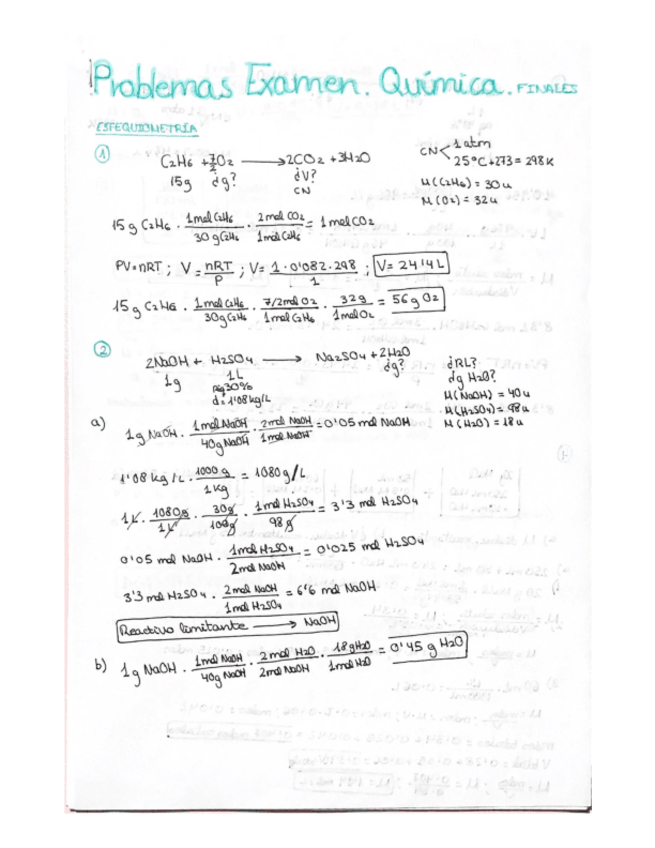 Problemas Examen. Química. FINALES
ESTEQUIOMETRÍA
① C2H6 + 7/2 O2 → 2CO2 + 3H2O
15g ¿g? ¿V?
CN
CN < 1 atm
25ºC + 273 = 298 K
M(C2H6) = 30 u
M(O2) = 32 u
15 g C2H6 · 1 mol C2H6 / 30 g C2H6 · 2 mol CO2 / 1 mol C2H6 = 1 mol CO2
PV = nRT ; V = nRT / P ; V = 1 · 0'082 · 298 / 1 ; V = 24'4 L
15 g C2H6 · 1 mol C2H6 / 30g C2H6 · 7/2 mol O2 / 1 mol C2H6 · 32g / 1 mol O2 = 56 g O2
② 2NaOH + H2SO4 → Na2SO4 + 2H2O
1g 1L ¿g?
30%
d = 1'08 kg/L
¿RL?
¿g H2O?
M(NaOH) = 40 u
M(H2SO4) = 98 u
M(H2O) = 18 u
a) 1 g NaOH · 1 mol NaOH / 40 g NaOH · 2 mol NaOH / 1 mol NaOH = 0'05 mol NaOH
1'08 kg/L · 1000 g / 1 kg = 1080 g/L
1 L · 1080 g / 1 L · 30 g / 100 g · 1 mol H2SO4 / 98 g = 3'3 mol H2SO4
0'05 mol NaOH · 1 mol H2SO4 / 2 mol NaOH = 0'025 mol H2SO4
3'3 mol H2SO4 · 2 mol NaOH / 1 mol H2SO4 = 6'6 mol NaOH
Reactivo limitante → NaOH
b) 1 g NaOH · 1 mol NaOH / 40g NaOH · 2 mol H2O / 2 mol NaOH · 18 g H2O / 1 mol H2O = 0'45 g H2O